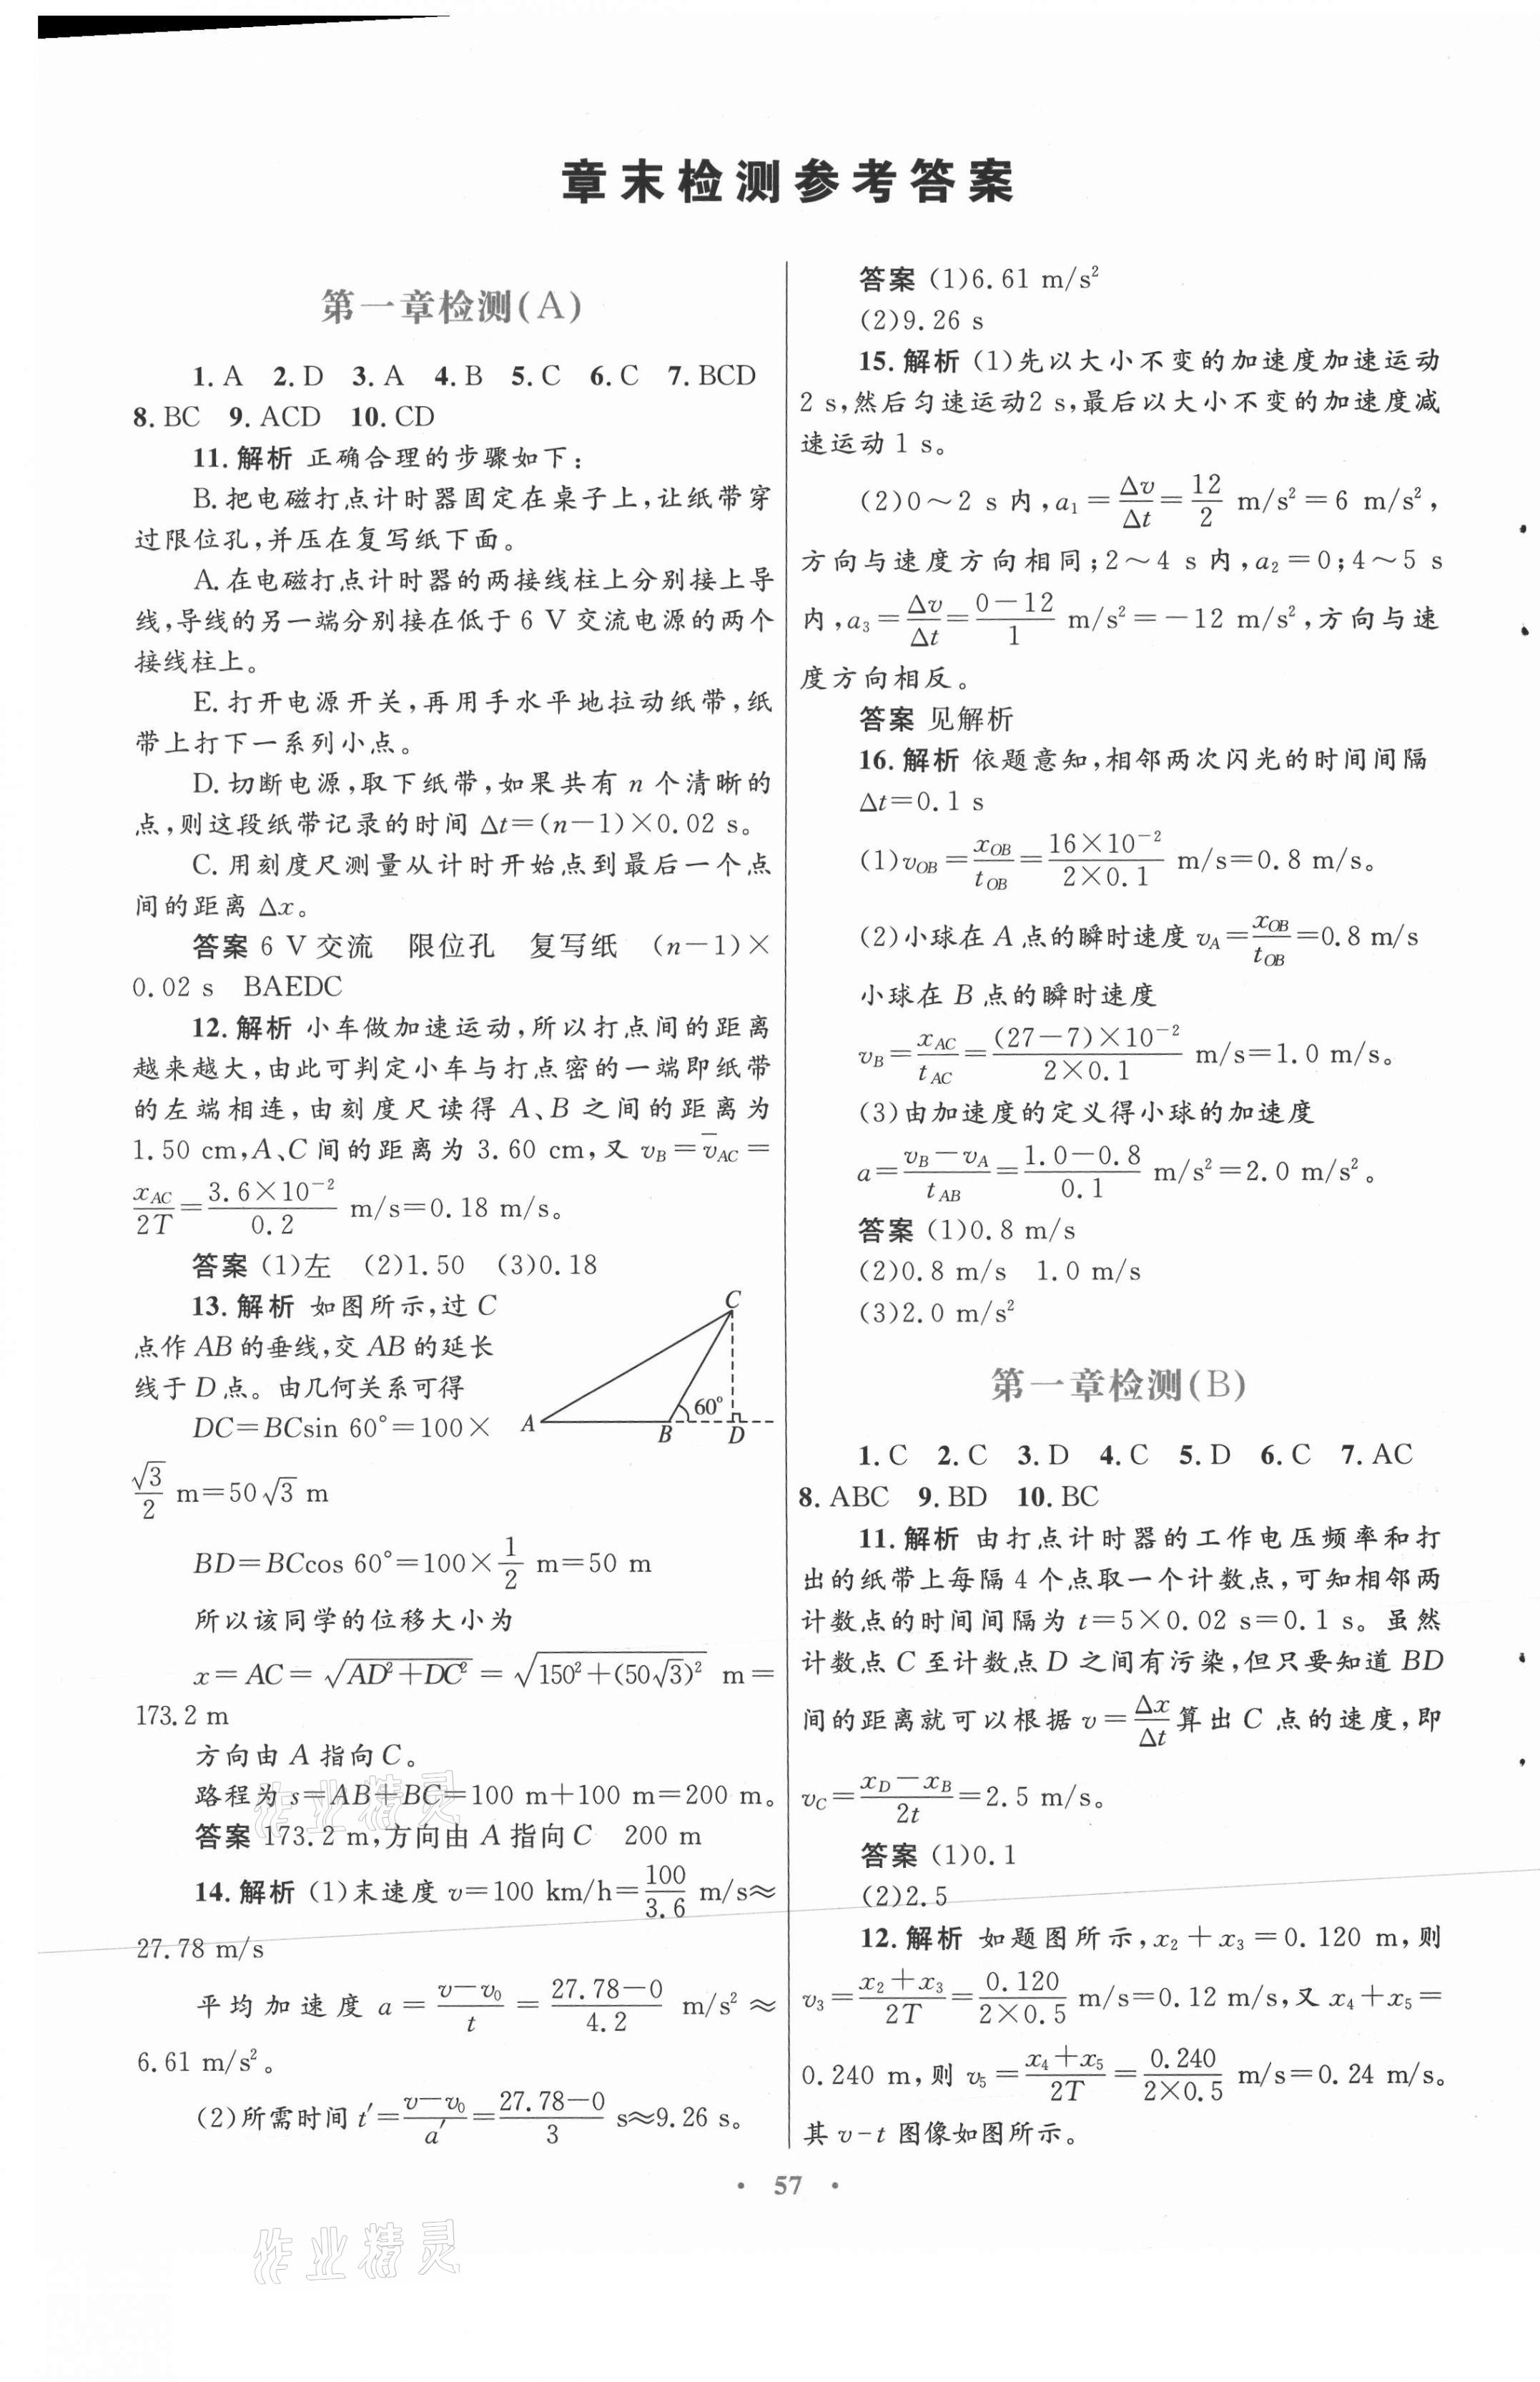 章末检测参考答案
第一章检测(A)
1. A 2. D 3. A 4. B 5. C 6. C 7. BCD
8. BC 9. ACD 10. CD
11. 解析 正确合理的步骤如下:
B. 把电磁打点计时器固定在桌子上,让纸带穿
过限位孔,并压在复写纸下面。
A. 在电磁打点计时器的两接线柱上分别接上导
线,导线的另一端分别接在低于 6 V 交流电源的两个
接线柱上。
E. 打开电源开关,再用手水平地拉动纸带,纸
带上打下一系列小点。
D. 切断电源,取下纸带,如果共有 n 个清晰的
点,则这段纸带记录的时间 Δt=(n−1)×0.02 s。
C. 用刻度尺测量从计时开始点到最后一个点
间的距离 Δx。
答案 6 V 交流 限位孔 复写纸 (n−1)×
0.02 s BAEDC
12. 解析 小车做加速运动,所以打点间的距离
越来越大,由此可判定小车与打点密的一端即纸带
的左端相连,由刻度尺读得 A、B 之间的距离为
1.50 cm,A、C 间的距离为 3.60 cm,又 v_B=v̄_AC=
x_AC/2T=3.6×10⁻²/0.2 m/s=0.18 m/s。
答案 (1)左 (2)1.50 (3)0.18
13. 解析 如图所示,过 C
点作 AB 的垂线,交 AB 的延长
线于 D 点。由几何关系可得
DC=BCsin 60°=100×
√3/2 m=50√3 m
C
A
B
60°
D
BD=BCcos 60°=100×1/2 m=50 m
所以该同学的位移大小为
x=AC=√(AD²+DC²)=√(150²+(50√3)²) m=
173.2 m
方向由 A 指向 C。
路程为 s=AB+BC=100 m+100 m=200 m。
答案 173.2 m,方向由 A 指向 C 200 m
14. 解析 (1)末速度 v=100 km/h=100/3.6 m/s≈
27.78 m/s
平均加速度 a=(v−v₀)/t=(27.78−0)/4.2 m/s²≈
6.61 m/s²。
(2)所需时间 t′=(v−v₀)/a′=(27.78−0)/3 s≈9.26 s。
答案 (1)6.61 m/s²
(2)9.26 s
15. 解析 (1)先以大小不变的加速度加速运动
2 s,然后匀速运动2 s,最后以大小不变的加速度减
速运动 1 s。
(2)0～2 s 内,a₁=Δv/Δt=12/2 m/s²=6 m/s²,
方向与速度方向相同;2～4 s 内,a₂=0;4～5 s
内,a₃=Δv/Δt=(0−12)/1 m/s²=−12 m/s²,方向与速
度方向相反。
答案 见解析
16. 解析 依题意知,相邻两次闪光的时间间隔
Δt=0.1 s
(1)v_OB=x_OB/t_OB=16×10⁻²/(2×0.1) m/s=0.8 m/s。
(2)小球在 A 点的瞬时速度 v_A=x_OB/t_OB=0.8 m/s
小球在 B 点的瞬时速度
v_B=x_AC/t_AC=(27−7)×10⁻²/(2×0.1) m/s=1.0 m/s。
(3)由加速度的定义得小球的加速度
a=(v_B−v_A)/t_AB=(1.0−0.8)/0.1 m/s²=2.0 m/s²。
答案 (1)0.8 m/s
(2)0.8 m/s 1.0 m/s
(3)2.0 m/s²
第一章检测(B)
1. C 2. C 3. D 4. C 5. D 6. C 7. AC
8. ABC 9. BD 10. BC
11. 解析 由打点计时器的工作电压频率和打
出的纸带上每隔 4 个点取一个计数点,可知相邻两
计数点的时间间隔为 t=5×0.02 s=0.1 s。虽然
计数点 C 至计数点 D 之间有污染,但只要知道 BD
间的距离就可以根据 v=Δx/Δt 算出 C 点的速度,即
v_C=(x_D−x_B)/2t=2.5 m/s。
答案 (1)0.1
(2)2.5
12. 解析 如题图所示,x₂+x₃=0.120 m,则
v₃=(x₂+x₃)/2T=0.120/(2×0.5) m/s=0.12 m/s,又 x₄+x₅=
0.240 m,则 v₅=(x₄+x₅)/2T=0.240/(2×0.5) m/s=0.24 m/s。
其 v-t 图像如图所示。
· 57 ·
作业精灵
作业精灵